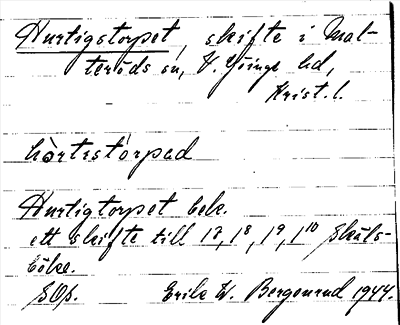 Hurtigstorpet, skifte i Mat-
teröds sn, V. Göinge hd,
Krist. l.
hòrtıstórpad
Hurtigtorpet bek.
ett skifte till 17, 18, 19, 1¹⁰ Skäls-
böke.
SOs. Erik W. Bergonrud 1944.